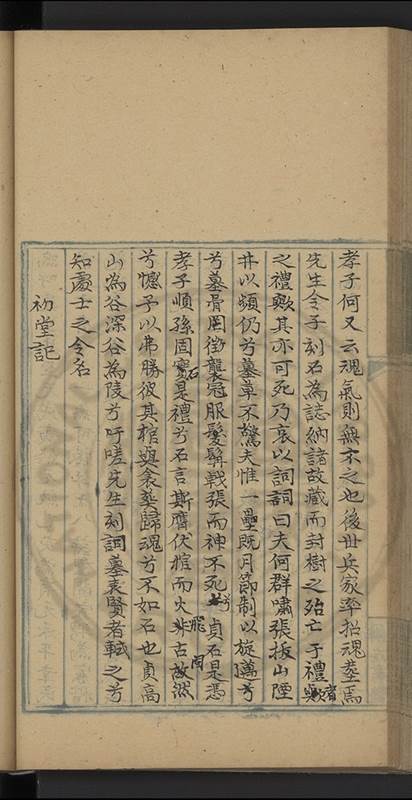 孝子何又云魂氣則無不之也後世兵家率招魂塟焉
先生令子刻石為誌納諸故藏而封樹之殆亡于禮者
之禮歟其亦可死乃哀以詞詞曰夫何群嘯張拔山陻
井以頻仍兮墓草不驚夫惟一壘既月節制以旋兮
兮墓骨罔徵襲冠服髮髯戟張而神不死兮貞石是憑
孝子順孫固是禮兮石言斯膺伏棺而火非古故然
兮憾予以弗勝彼其棺與衾塟歸魂兮不如石也貞高
山為谷深谷為陵兮吁嗟先生刻詞墓表賢者軾之兮
知處士之令名
初堂記